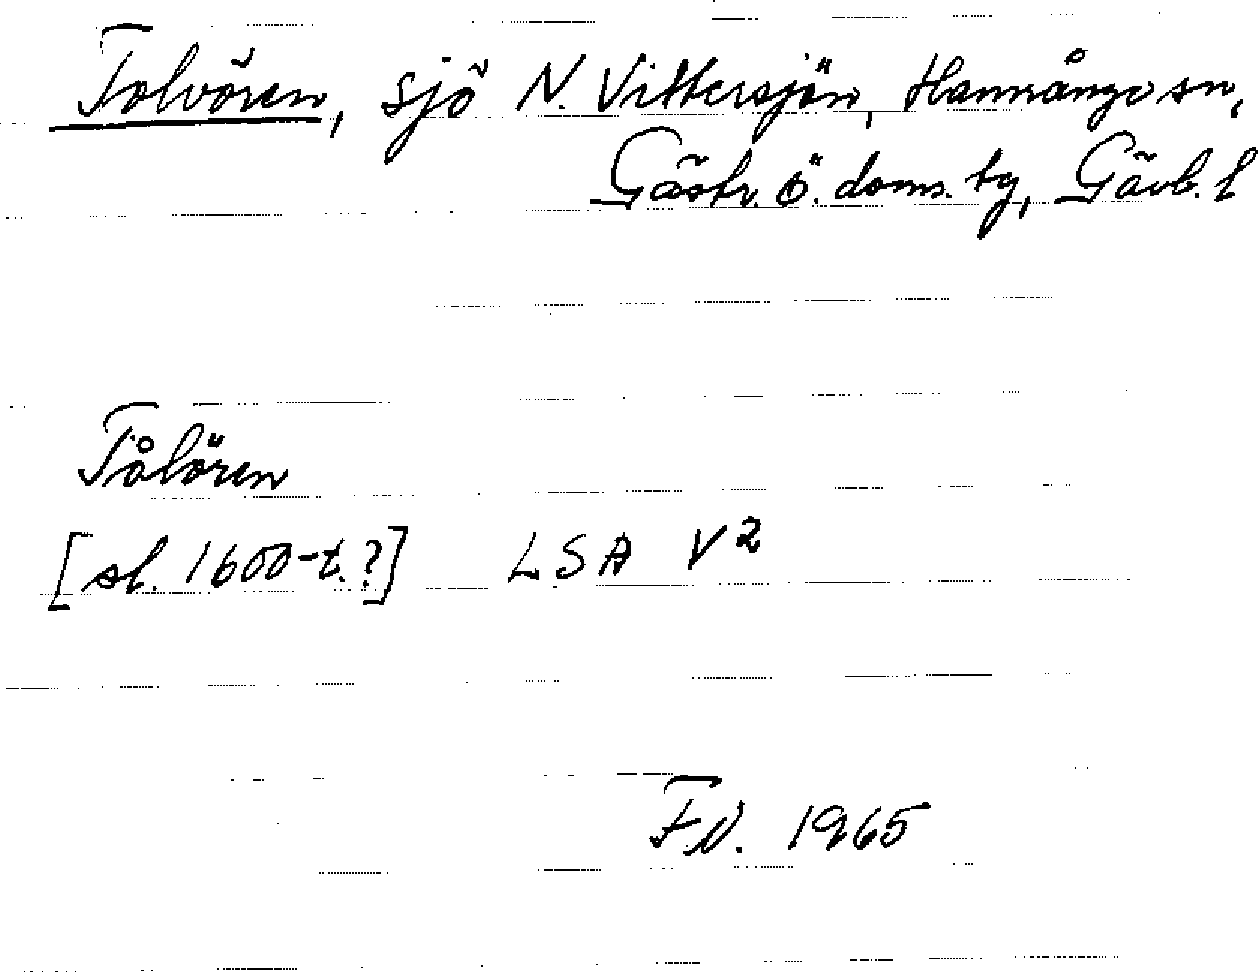 Tolvören, sjö N. Vittersjön, Hamrånge sn,
Gästr. ö. doms. tg, Gävlb. l
Tålören
[sl. 1600-t.?] LSA V2
1965